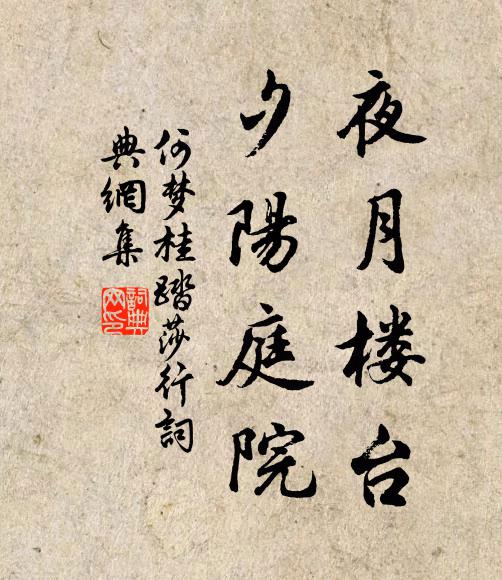 夜月楼台
夕陽庭院
何梦桂踏莎行詞
典網集
詞典網印